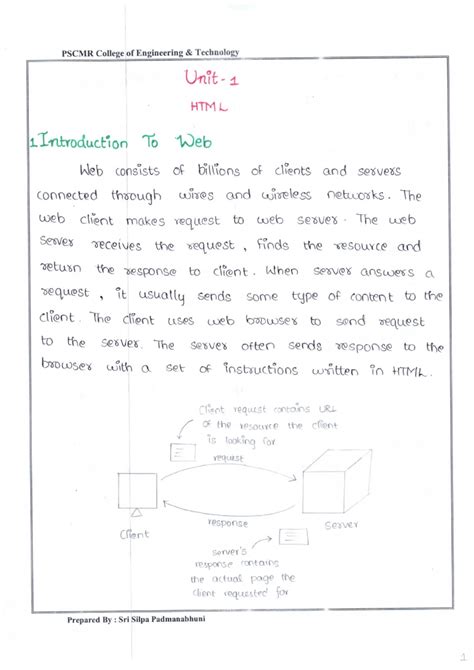 PSCMR College of Engineering & Technology
Unit-1
HTML
1 Introduction To Web
Web consists of billions of clients and servers
connected through wires and wireless networks. The
web client makes request to web server. The web
Server receives the request, finds the resource and
return the response to client. When server answers a
request, it usually sends some type of content to the
client. The client uses web browser to send request
to the server. The server often sends response to the
browser with a set of instructions written in HTML.
Client request contains URL
of the resource the client
is looking for
request
response
Client
Server
server's
response contains
the actual page the
client requested for
Prepared By : Sri Silpa Padmanabhuni
1